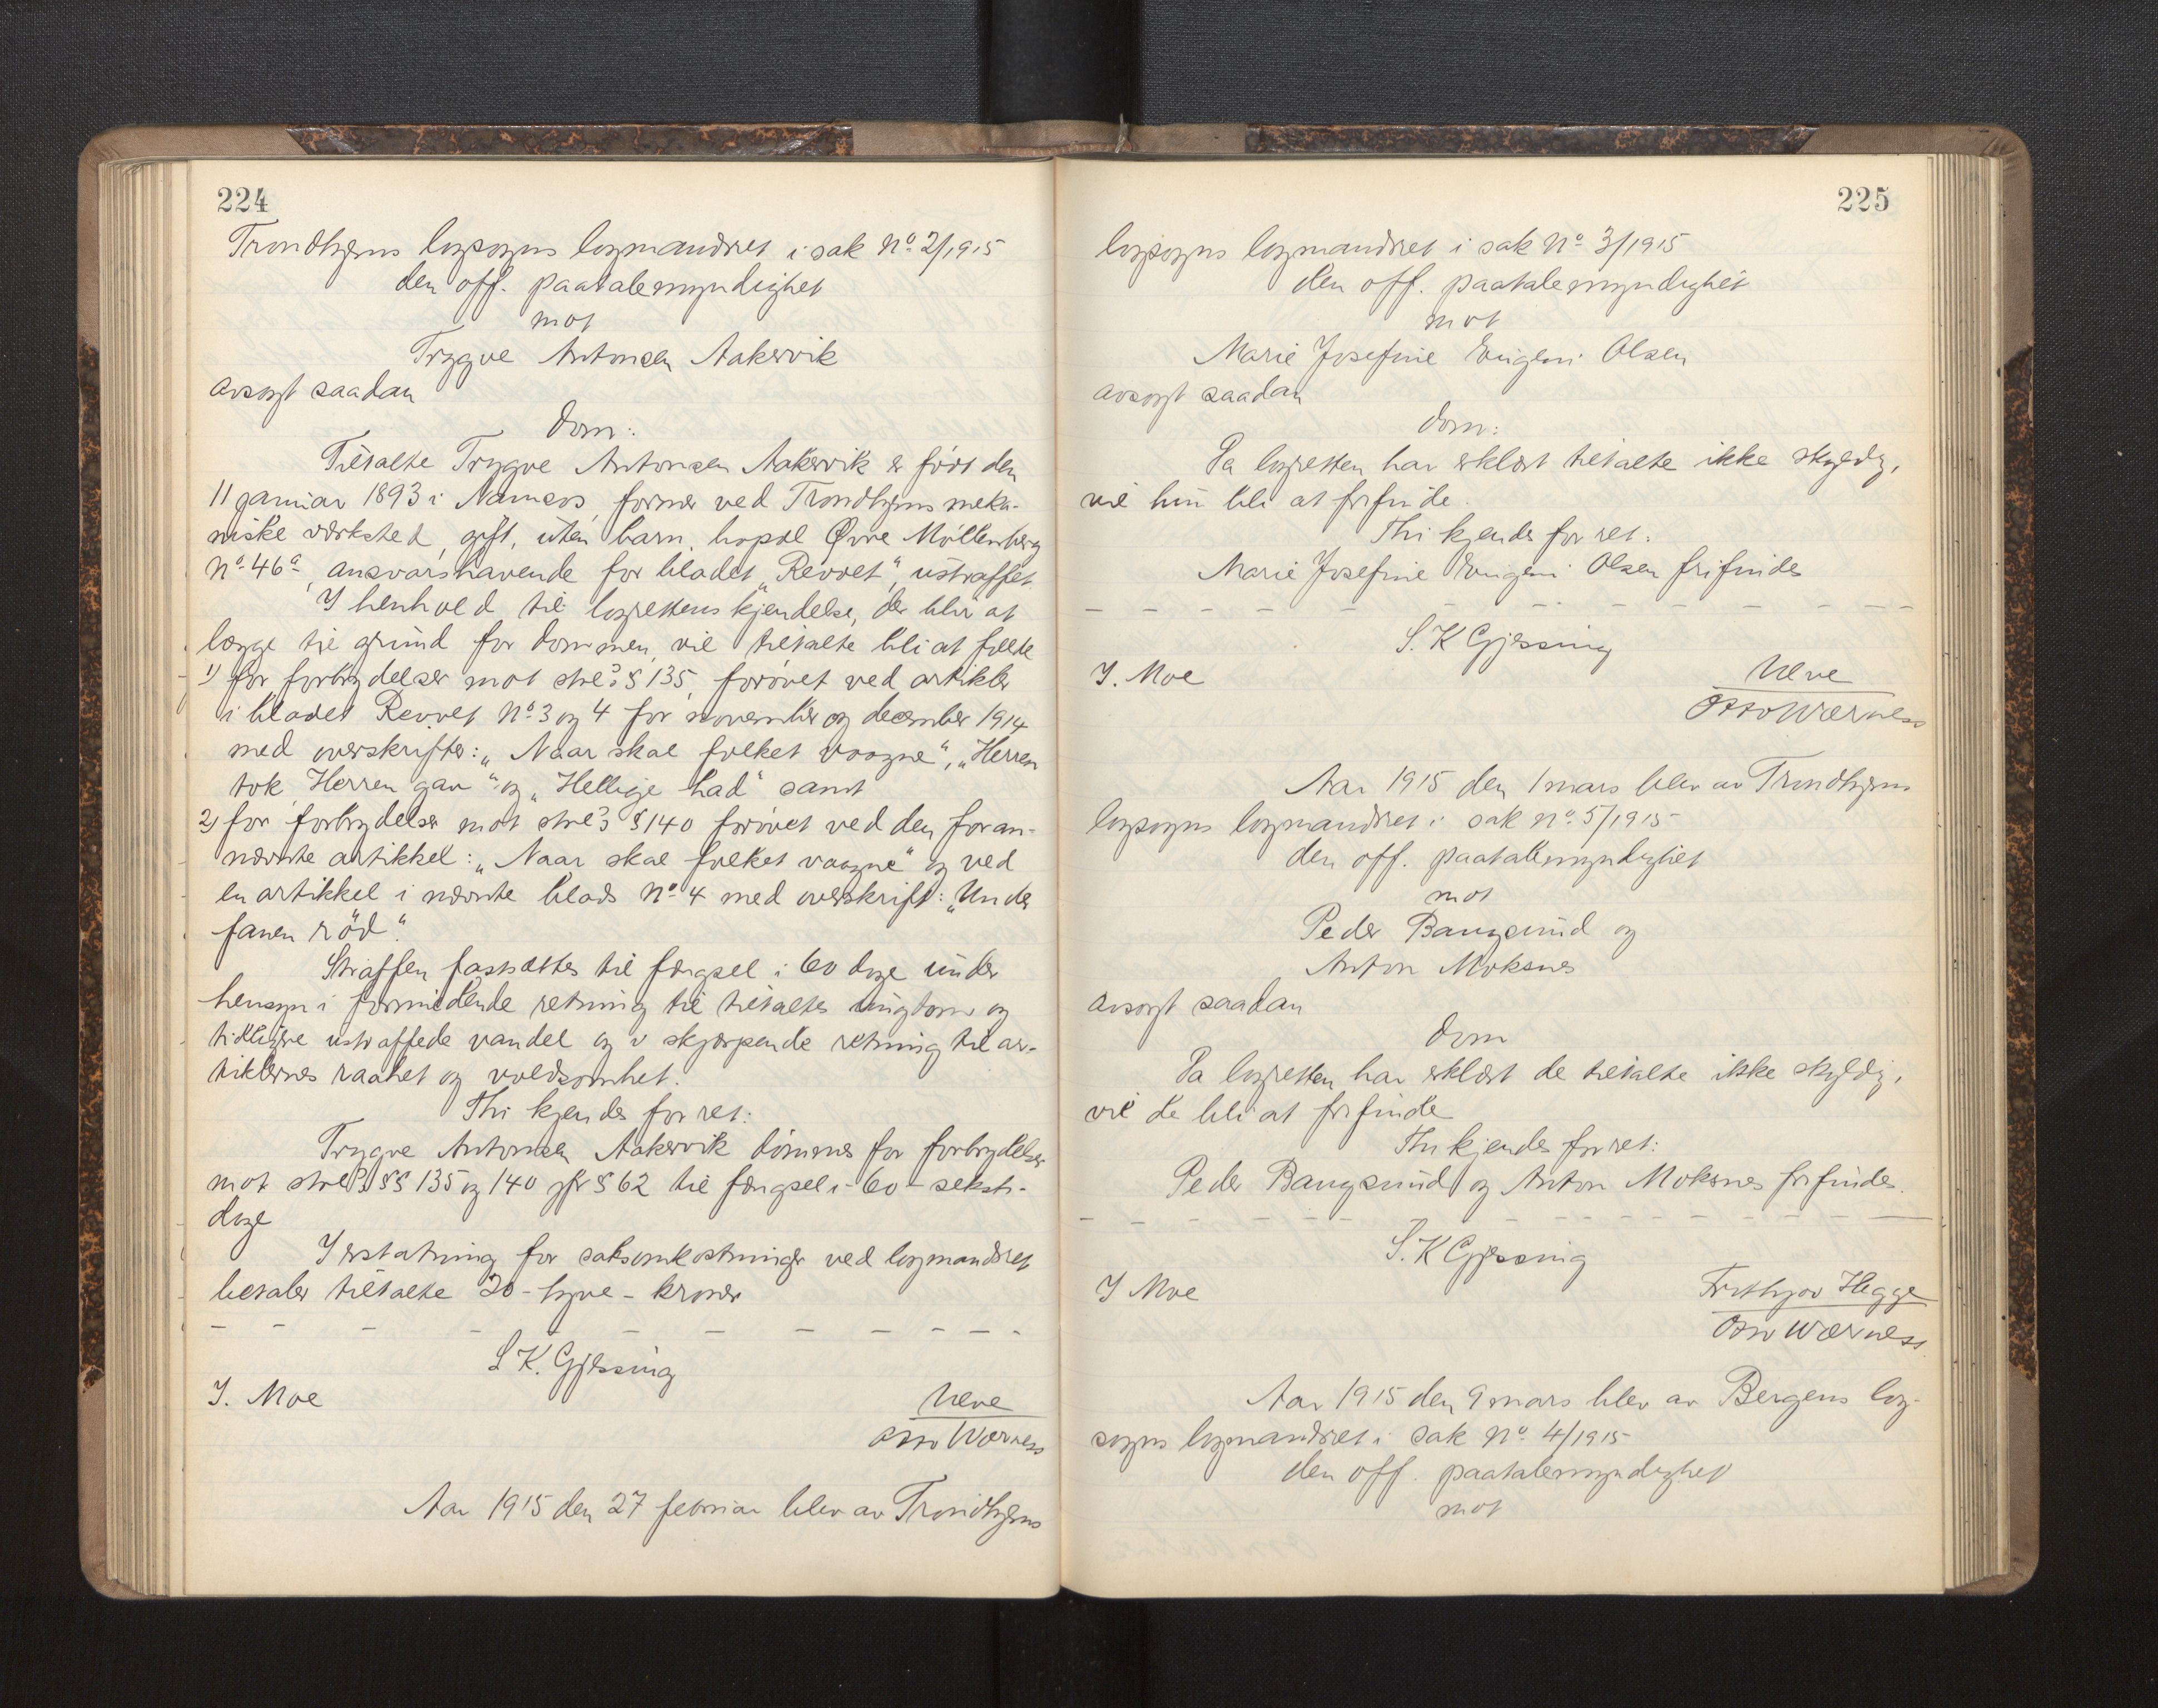 224
Trondhjems lagsogns lagmandsret i sak No 2/1915
den off. paatalemyndighet
mot
Trygve Antonsen Aakervik
avsagt saadan
dom:
Tiltalte Trygve Antonsen Aakervik er født den
11 januar 1893 i Namsos, former ved Trondhjems meka-
niske verksted, gift, uten barn, bopæl Øvre Møllenberg
No 46a, ansvarshavende for bladet „Revolt“, ustraffet.
I henhold til lagrettens kjendelse, der blir at
lægge til grund for dommen, vil tiltalte bli at fælde
1) for forbrydelser mot strl's § 135, forøvet ved artikler
i bladet Revolt No 3 og 4 for november og december 1914
med overskrifter: „Naar skal folket vaagne“, „Herren
tok Herren gav“ og „Hellige had“ samt
2) for forbrydelse mot strl's § 140 forøvet ved den foran-
nævnte artikkel: „Naar skal folket vaagne“ og ved
en artikkel i nævnte blads No 4 med overskrift: „Under
fanen rød“.
Straffen fastsættes til fængsel i 60 dage under
hensyn i formildende retning til tiltaltes ungdom og
tidligere ustraffede vandel og i skjærpende retning til ar-
tiklernes raahet og voldsomhet.
Thi kjendes for ret:
Trygve Antonsen Aakervik dømmes for forbrydelser
mot strl's §§ 135 og 140 jfr § 62 til fængsel i 60 - seksti -
dage
I erstatning for saksomkostninger ved lagmandsret
betaler tiltalte 20 - tyve - kroner
S. K. Gjessing
I. Moe
Ueve
Otto Wærness
Aar 1915 den 27 februar blev av Trondhjems
225
lagsogns lagmandsret i sak No 3/1915
den off. paatalemyndighet
mot
Marie Josefine Eugeni Olsen
avsagt saadan
dom:
Da lagretten har erklært tiltalte ikke skyldig,
vil hun bli at frifinde.
Thi kjendes for ret:
Marie Josefine Eugeni Olsen frifindes
S. K Gjessing
I. Moe
Ueve
Otto Wærness
Aar 1915 den 1 mars blev av Trondhjems
lagsogns lagmandsret i sak No 5/1915
den off. paatalemyndighet
mot
Peder Bangsund og
Anton Moksnes
avsagt saadan
dom
Da lagretten har erklært de tiltalte ikke skyldig,
vil de bli at frifinde
Thi kjendes for ret:
Peder Bangsund og Anton Moksnes frifindes.
S. K Gjessing
I Moe
Frithjov Hegge
Otto Wærness
Aar 1915 den 9 mars blev av Bergens lag-
sogns lagmandsret i sak No 4/1915
den off. paatalemyndighet
mot